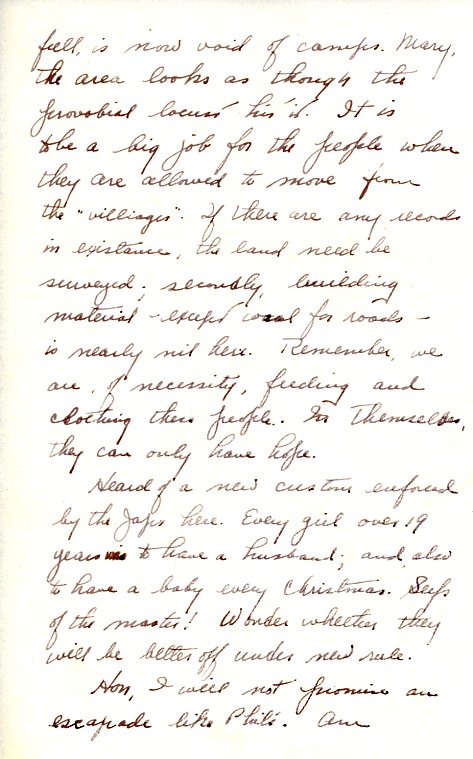 full, is now void of camps. Mary,
the area looks as though the
provobial locust his it. It is
to be a big job for the people when
they are allowed to move from
the "villiages". If there are any records
in existance, the land need be
surveyed; secondly, building
material - except coral for roads -
is nearly nil here. Remember, we
are, of necessity, feeding and
clothing these people. For Themselves,
they can only have hope.
Heard of a new custom enforced
by the Japs here. Every girl over 19
years to have a husband; and also
to have a baby every Christmas.
of the master! Wonder whether they
will be better off under new rule.
Hon, I will not promise an
escapade like Phil's. Am